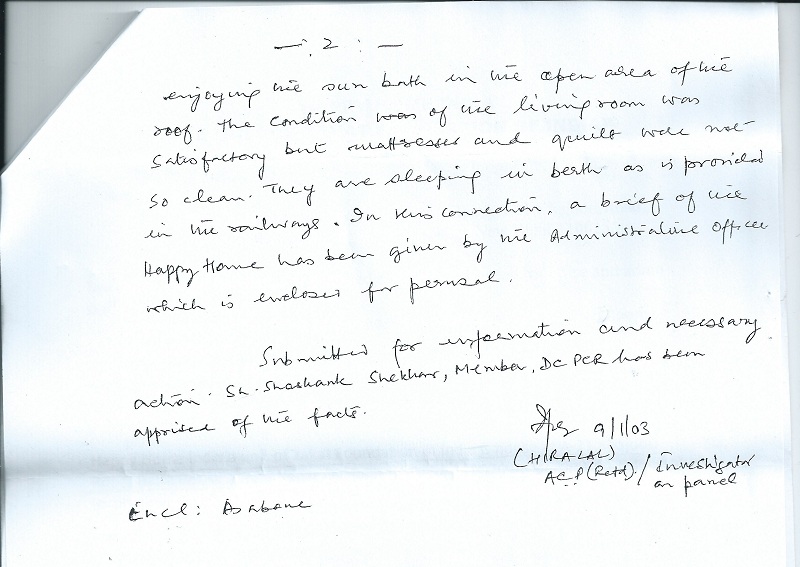 — : 2 : —
enjoying the sun bath in the open area of the
roof. The condition was of the living room was
satisfactory but mattresses and quilts were not
so clean. They are sleeping in berth as is provided
in the railways. In this connection, a brief of the
Happy Home has been given by the Administrative Officer
which is enclosed for perusal.
Submitted for information and necessary
action. Sh. Shashank Shekhar, Member, DCPCR has been
apprised of the facts.
9/1/03
(HIRA LAL)
ACP (Retd) / Investigator
on panel
Encl: As above